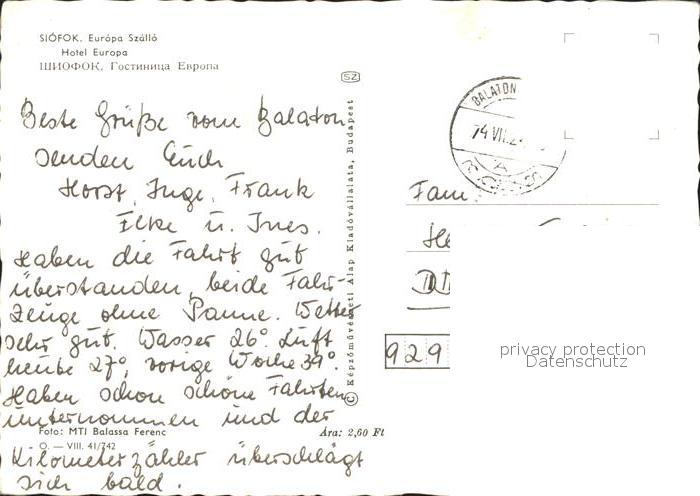 SIÓFOK. Európa Szálló
Hotel Europa
ШИОФОК, Гостиница Европа
SZ
Beste Grüße vom Balaton
senden Euch
Horst, Inge, Frank
Elke u. Ines.
Haben die Fahrt gut
überstanden, beide Fahr-
zeuge ohne Panne. Wetter
sehr gut. Wasser 26° Luft
heute 27°, vorige Woche 39°.
Haben schon schöne Fahrten
unternommen und der
Kilometerzähler überschlägt
sich bald.
Foto: MTI Balassa Ferenc
O. — VIII. 41/742
Ára: 2,60 Ft
© Képzőművészeti Alap Kiadóvállalata, Budapest
BALATON
74 VII.2
A
Fam.
He
929
privacy protection
Datenschutz